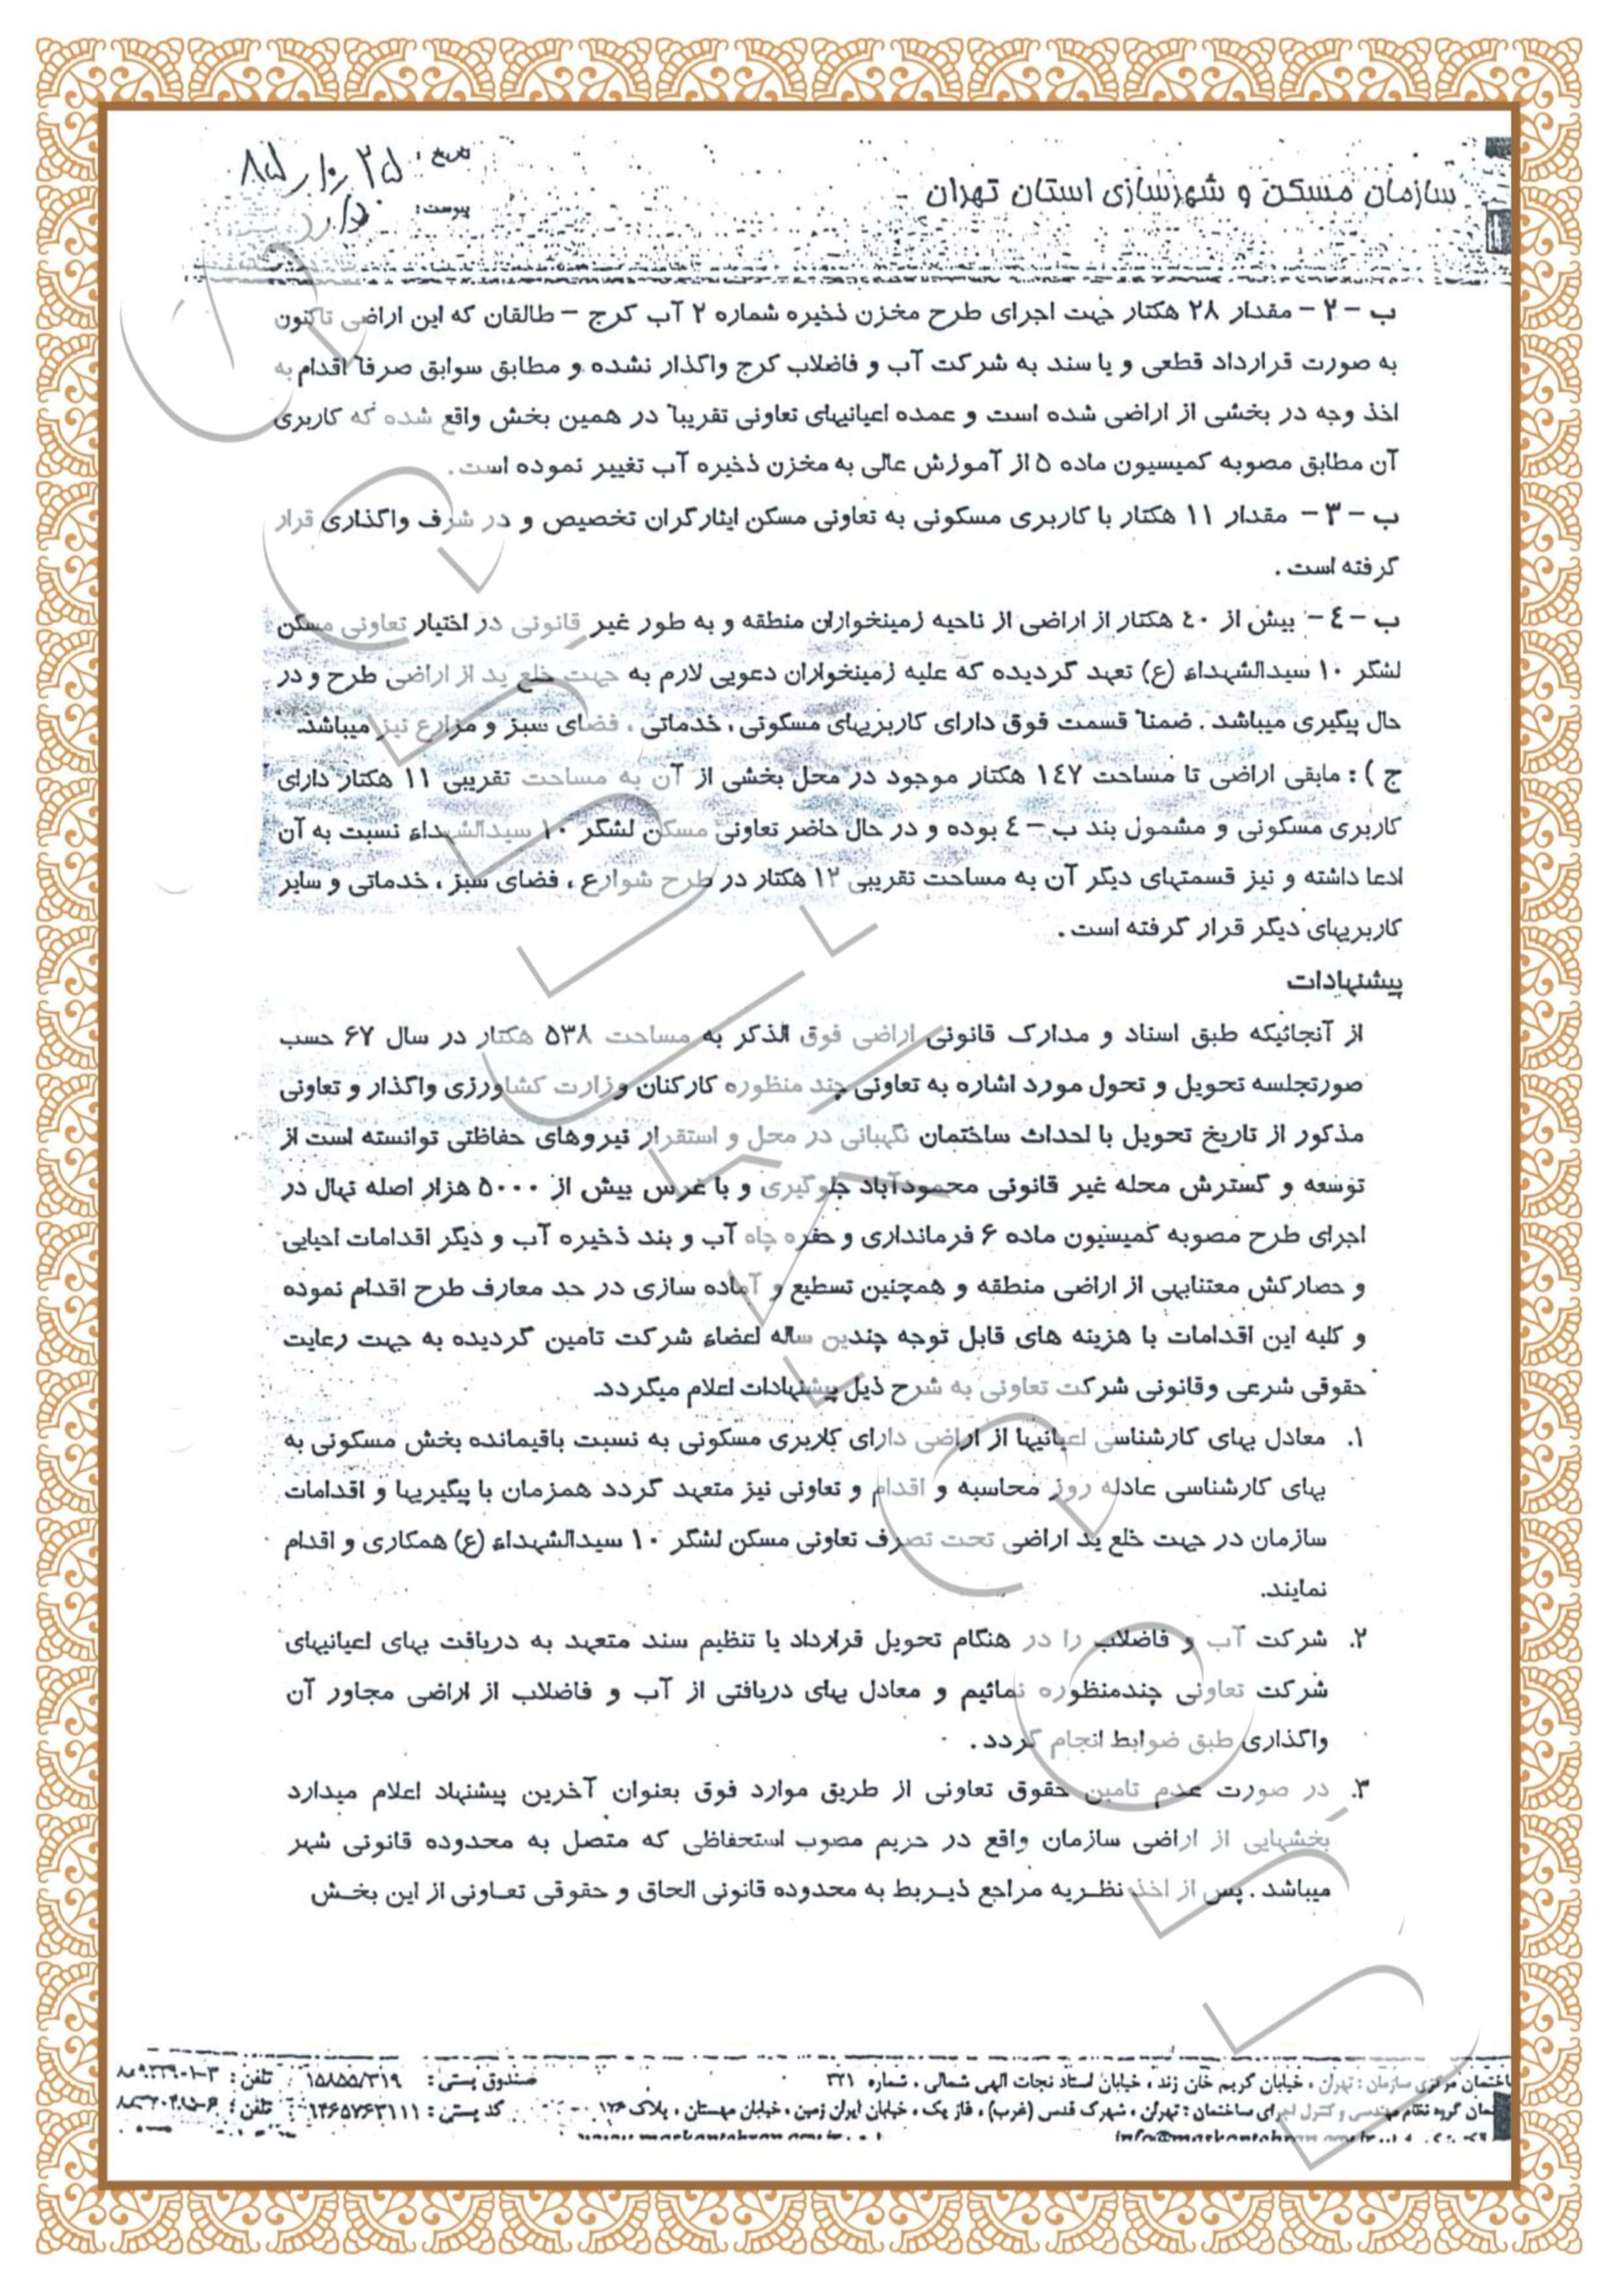 سازمان مسکن و شهرسازی استان تهران
تاریخ: ۸۵/۱۰/۲۵
پیوست:
ب – ۲ – مقدار ۲۸ هکتار جهت اجرای طرح مخزن ذخیره شماره ۲ آب کرج – طالقان که این اراضی تاکنون
به صورت قرارداد قطعی و یا سند به شرکت آب و فاضلاب کرج واگذار نشده و مطابق سوابق صرفاً اقدام به
اخذ وجه در بخشی از اراضی شده است و عمده اعیانیهای تعاونی تقریباً در همین بخش واقع شده که کاربری
آن مطابق مصوبه کمیسیون ماده ۵ از آموزش عالی به مخزن ذخیره آب تغییر نموده است.
ب – ۳ – مقدار ۱۱ هکتار با کاربری مسکونی به تعاونی مسکن ایثارگران تخصیص و در شرف واگذاری قرار
گرفته است .
ب – ٤ – بیش از ٤٠ هکتار از اراضی از ناحیه زمینخواران منطقه و به طور غیر قانونی در اختیار تعاونی مسکن
لشگر ۱۰ سیدالشهداء (ع) تعهد گردیده که علیه زمینخواران دعویی لازم به جهت خلع ید از اراضی طرح و در
حال پیگیری میباشد . ضمناً قسمت فوق دارای کاربریهای مسکونی ، خدماتی ، فضای سبز و مزارع نیز میباشد.
ج ) : مابقی اراضی تا مساحت ۱٤۷ هکتار موجود در محل بخشی از آن به مساحت تقریبی ۱۱ هکتار دارای
کاربری مسکونی و مشمول بند ب – ٤ بوده و در حال حاضر تعاونی مسکن لشگر ۱۰ سیدالشهداء نسبت به آن
ادعا داشته و نیز قسمتهای دیگر آن به مساحت تقریبی ۱۲ هکتار در طرح شوارع ، فضای سبز ، خدماتی و سایر
کاربریهای دیگر قرار گرفته است .
پیشنهادات
از آنجائیکه طبق اسناد و مدارک قانونی اراضی فوق الذکر به مساحت ۵۳۸ هکتار در سال ۶۷ حسب
صورتجلسه تحویل و تحول مورد اشاره به تعاونی چند منظوره کارکنان وزارت کشاورزی واگذار و تعاونی
مذکور از تاریخ تحویل با احداث ساختمان نگهبانی در محل و استقرار نیروهای حفاظتی توانسته است از
توسعه و گسترش محله غیر قانونی محمودآباد جلوگیری و با غرس بیش از ۵۰۰۰ هزار اصله نهال در
اجرای طرح مصوبه کمیسیون ماده ۶ فرمانداری و حفره چاه آب و بند ذخیره آب و دیگر اقدامات احیایی
و حصارکش معتنابهی از اراضی منطقه و همچنین تسطیع و آماده سازی در حد معارف طرح اقدام نموده
و کلیه این اقدامات با هزینه های قابل توجه چندین ساله اعضاء شرکت تامین گردیده به جهت رعایت
حقوقی شرعی وقانونی شرکت تعاونی به شرح ذیل پیشنهادات اعلام میگردد.
۱. معادل بهای کارشناسی اعیانیها از اراضی دارای کاربری مسکونی به نسبت باقیمانده بخش مسکونی به
بهای کارشناسی عادله روز محاسبه و اقدام و تعاونی نیز متعهد گردد همزمان با پیگیریها و اقدامات
سازمان در جهت خلع ید اراضی تحت تصرف تعاونی مسکن لشگر ۱۰ سیدالشهداء (ع) همکاری و اقدام
نمایند.
۲. شرکت آب و فاضلاب را در هنگام تحویل قرارداد یا تنظیم سند متعهد به دریافت بهای اعیانیهای
شرکت تعاونی چندمنظوره نمائیم و معادل بهای دریافتی از آب و فاضلاب از اراضی مجاور آن
واگذاری طبق ضوابط انجام گردد .
۳. در صورت عدم تامین حقوق تعاونی از طریق موارد فوق بعنوان آخرین پیشنهاد اعلام میدارد
بخشهایی از اراضی سازمان واقع در حریم مصوب استحفاظی که متصل به محدوده قانونی شهر
میباشد . پس از اخذ نظریه مراجع ذیربط به محدوده قانونی الحاق و حقوقی تعاونی از این بخش
اختمان مرکزی سازمان : تهران ، خیابان کریم خان زند ، خیابان استاد نجات الهی شمالی ، شماره ۲۲۱ صندوق پستی : ۱۵۸۵۵/۳۱۹ تلفن :
تمان گروه نظام مهندسی و کنترل اجرای ساختمان : تهران ، شهرک قدس (غرب) ، فاز یک ، خیابان ایران زمین ، خیابان مهستان ، پلاک ۱۲۶ کد پستی : ۱۴۶۵۷۶۳۱۱۱ تلفن :